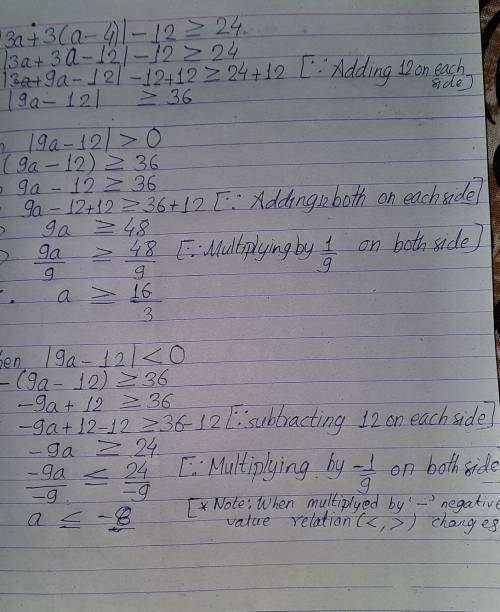 |3a + 3(a - 4)| - 12 ≥ 24
|3a + 3a - 12| - 12 ≥ 24
|9a - 12| - 12 + 12 ≥ 24 + 12 [∵ Adding 12 on each side]
|9a - 12| ≥ 36
|9a - 12| > 0
(9a - 12) ≥ 36
9a - 12 ≥ 36
9a - 12 + 12 ≥ 36 + 12 [∵ Adding 12 both on each side]
9a ≥ 48
9a/9 ≥ 48/9 [∵ Multiplying by 1/9 on both side]
a ≥ 16/3
|9a - 12| < 0
-(9a - 12) ≥ 36
-9a + 12 ≥ 36
-9a + 12 - 12 ≥ 36 - 12 [∵ subtracting 12 on each side]
-9a ≥ 24
-9a/-9 ≤ 24/-9 [∵ Multiplying by -1/9 on both side
a ≤ -8 [* Note: When multiplyed by '-' negative
value relation (<, >) changes